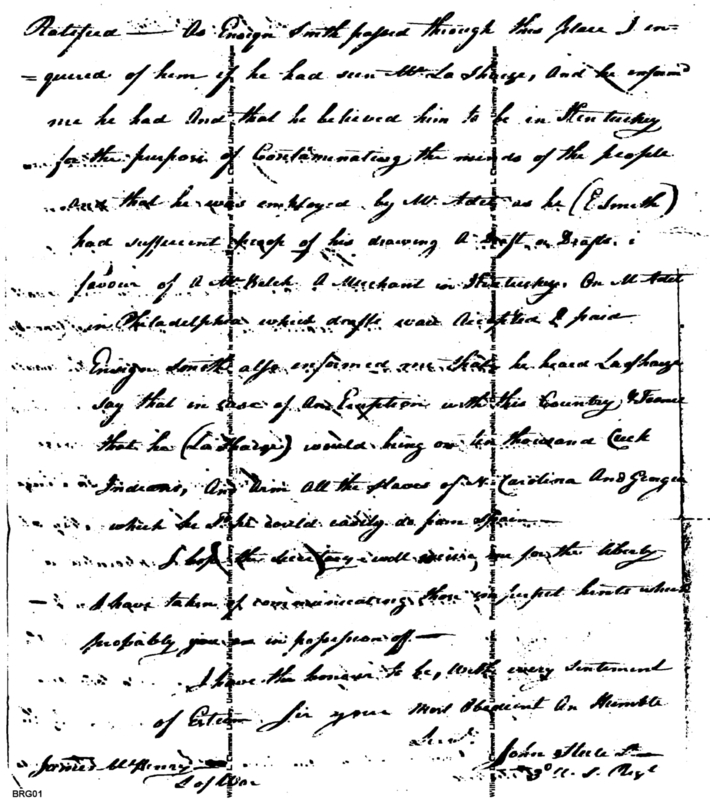 Ratified — As Ensign Smith passed through this place I en=
=quered of him if he had seen Mr. La Sharge, And he enform'd
me he had And that he believed him to be in Kentuckey
for the purpose of Contaminating the minds of the people
and that he was employed by Mr. Adet as he (E Smith)
had suffecent proof of his drawing A Draft or Drafts
favour of A Mr. Welch A Merchant in Kentuckey. On Mr Adet
in Philadelphia which drafts ware Accepted & paid
Ensign Smith also enformed me that he heard LaSharge
say that in case of An Eruption with this Country & France
that he (La Sharge) would bring on ten thousand Creek
Indians, And Arm All the slaves of N. Carolina And Georgia
which he sd. he could easily do from Spain —
I hope the secretary will excuse me for the liberty
— I have taken of communicating those imperfect hints which
probably you are in possession off —
I have the honour to be, with every sentement
of Esteem Sir your Most Obedient An Humble
Servt.
John Steele Lt
James McHenry
3d U. S. Regt
S of War
BRG01